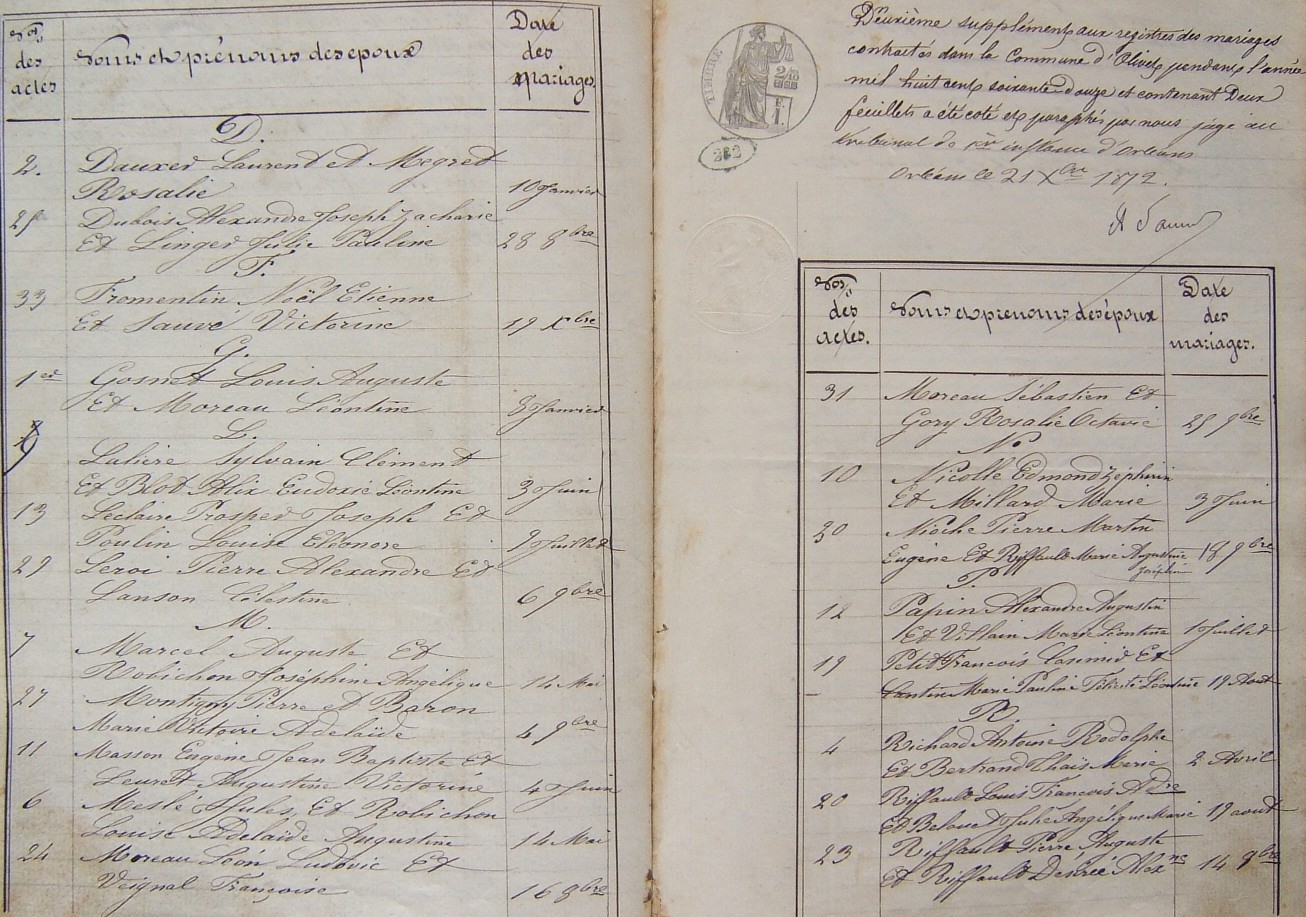 Nos
des
actes
Noms et prénoms des époux
Date
des
mariages.
D.
2. Dauxer Laurent et Megret
Rosalie 10 Janvier
25 Dubois Alexandre Joseph Zacharie
Et Linger Julie Pauline 28 8bre
F.
33 Fromentin Noël Etienne
Et Sauvé Victorine 19 Xbre
G.
1er Gosnet Louis Auguste
Et Moreau Léontine 8 Janvier
L.
9 Lalière Sylvain Clément
Et Blot Alix Eudoxie Léontine 3 Juin
13 Leclaire Prosper Joseph Et
Poulin Louise Eléonore 9 Juillet
29 Leroi Pierre Alexandre Et
Lanson Célestine 6 9bre
M.
7 Marcel Auguste Et
Robichon Joséphine Angélique 14 Mai
27 Montigny Pierre et Baron
Marie Victoire Adelaïde 4 9bre
11 Masson Eugène Jean Baptiste Et
Leuret Augustine Victorine 4 Juin
6 Mesle Jules, Et Robichon
Louise Adelaïde Augustine 14 Mai
24 Moreau Léon Ludovic Et
Veignal Françoise 16 8bre
TIMBRE
232
Deuxième supplément aux registres des mariages
contractés dans la Commune d'Olivet pendant l'année
mil huit cent soixante douze et contenant Deux
feuillets a été coté et paraphé par nous juge au
tribunal de 1re instance d'Orléans
Orléans le 21 Xbre 1872.
Nos
des
actes.
Noms et prénoms des époux
Date
des
mariages.
31 Moreau Sébastien Et
Gory Rosalie Octavie 25 9bre
N.
10 Nicolle Edmond Zéphirin
Et Millard Marie 3 Juin
30 Nioche Pierre Martin
Eugène Et Riffault Marie Augustine 18 9bre
Joséphine
P.
12 Papin Alexandre Augustin
Et Villain Marie Léontine 1 Juillet
19 Petit François Casimir Et
Lantine Marie Pauline Félicité Léontine 19 Août
R
4 Richard Antoine Rodolphe
Et Bertrand Thaïs Marie 2 Avril
20 Riffault Louis François Adre
Et Belouet Julie Angélique Marie 19 août
23 Riffault Pierre Auguste
Et Riffault Désirée Alexne 14 8bre